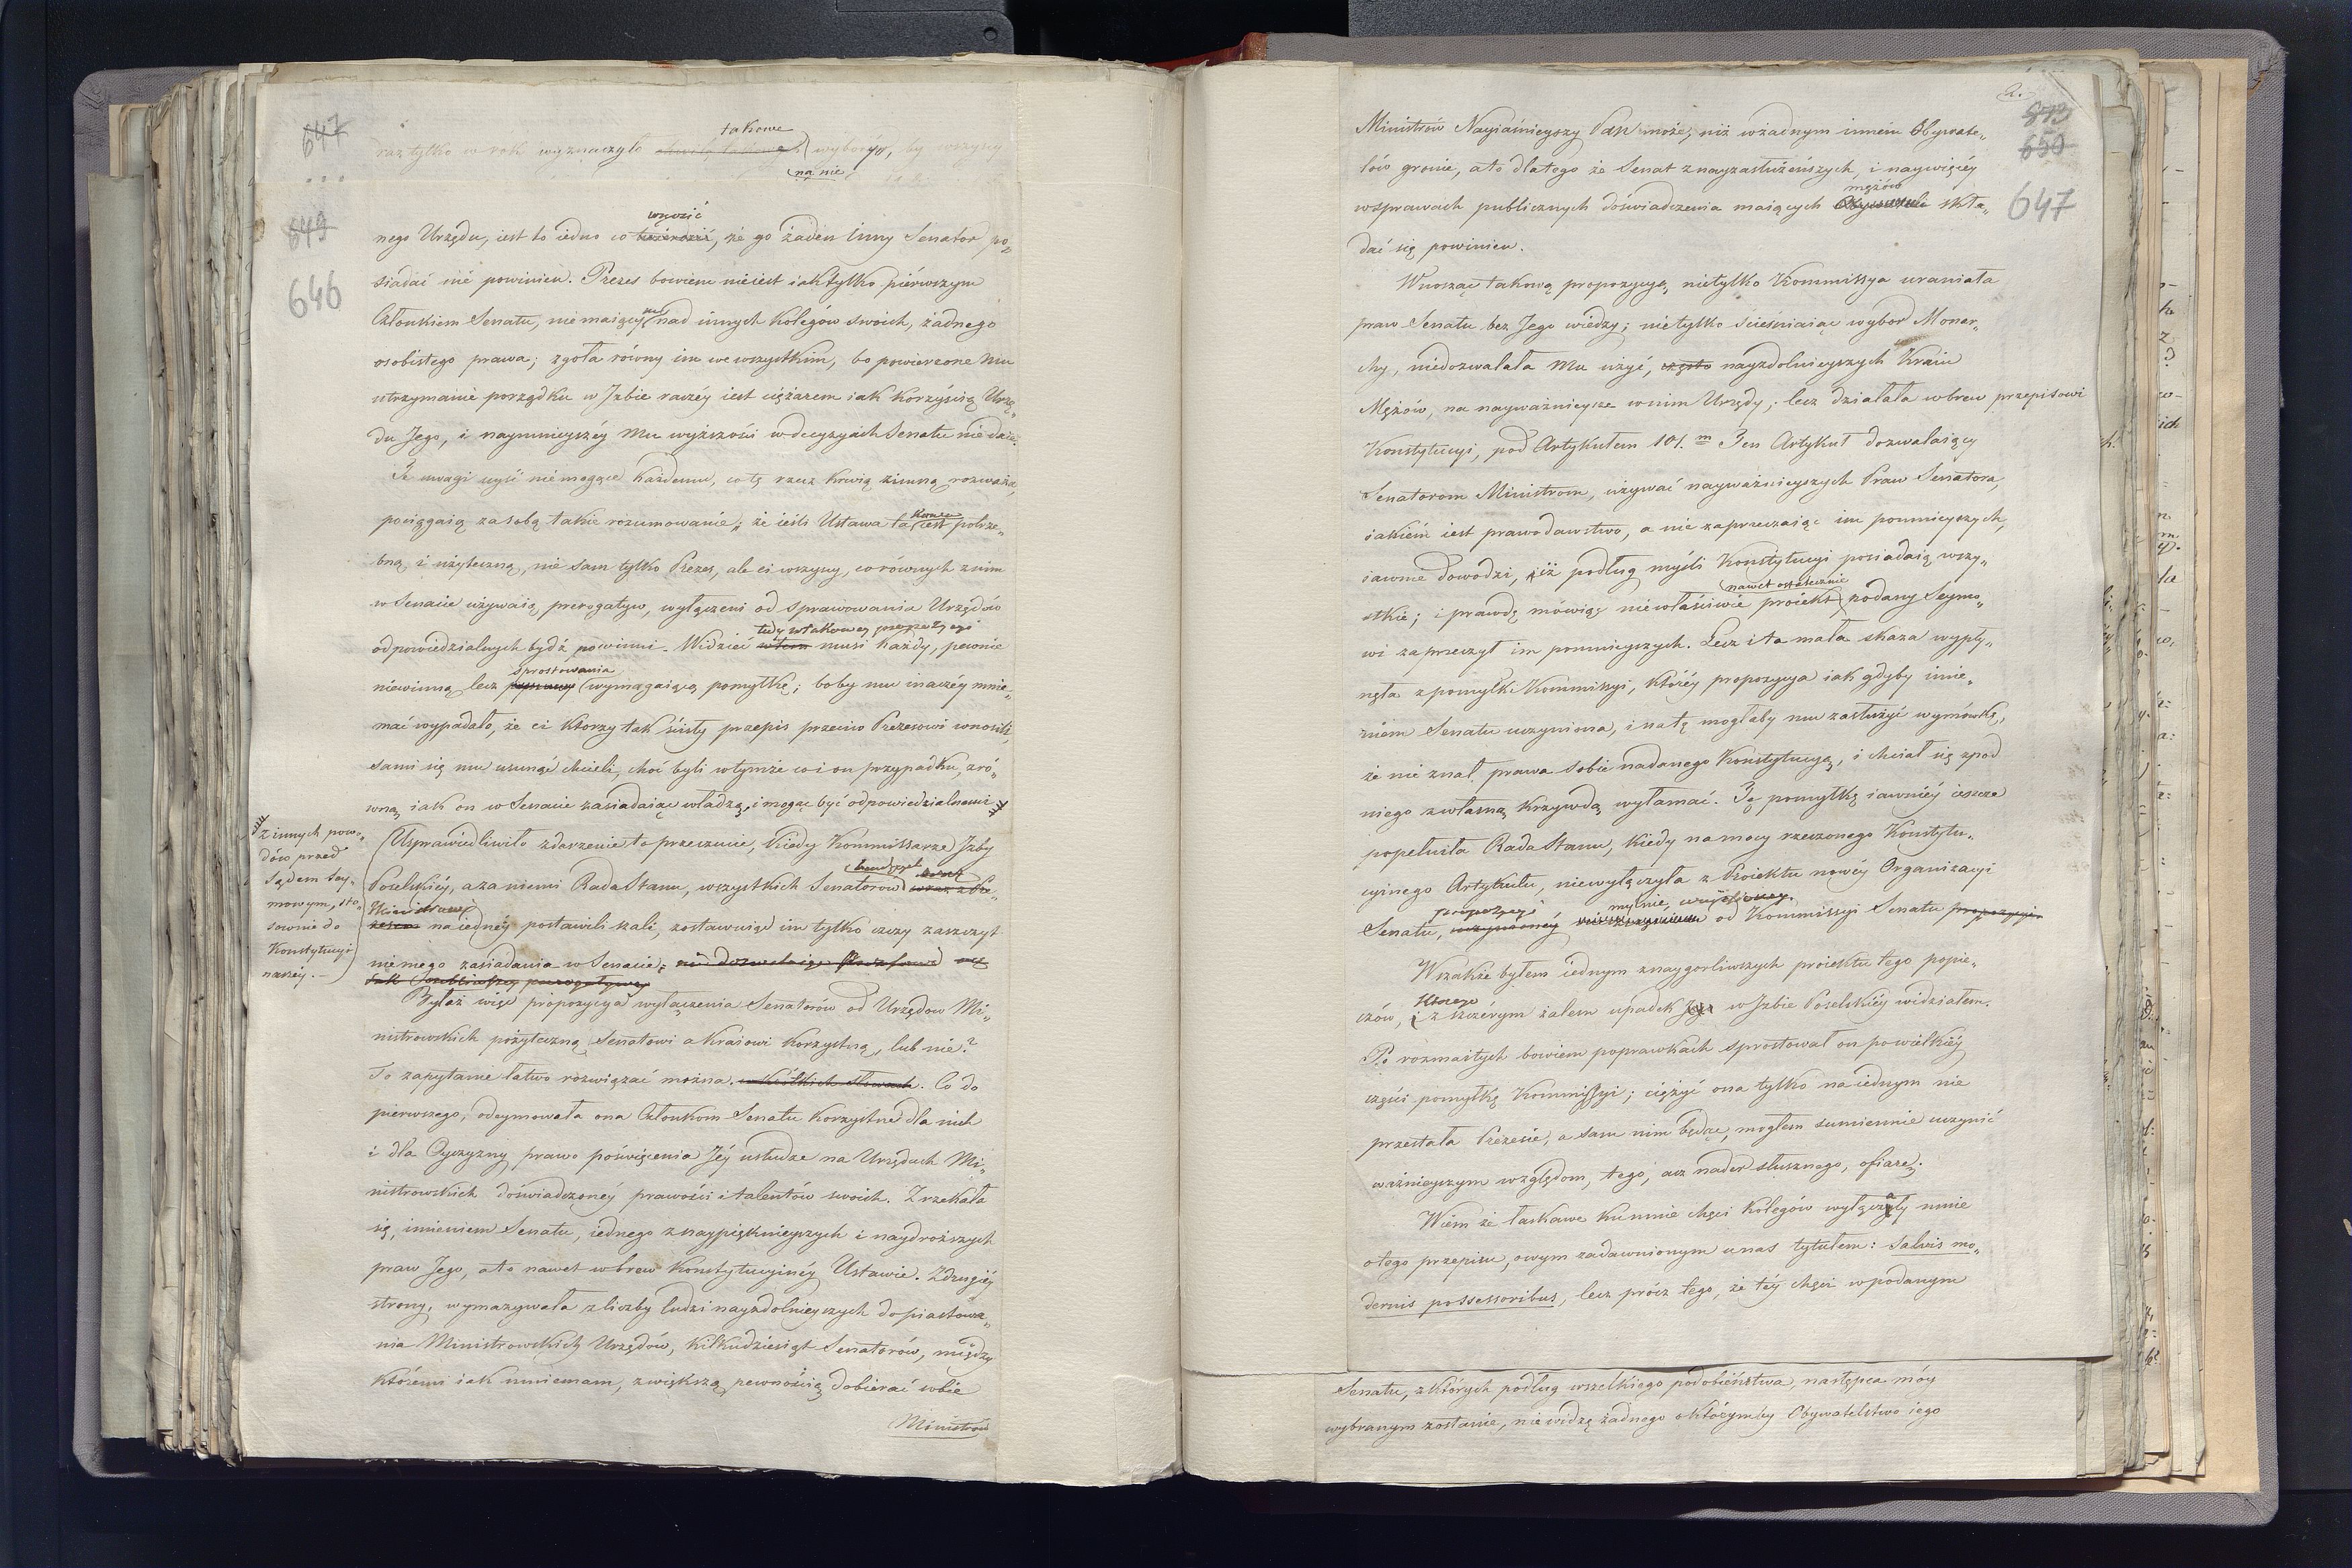 647
takowe
raz tylko w rok wyznaczyło wybory, by wszyscy
na nie
849
646
wnosić
nego Urzędu, iest to iedno co twierdzić, że go żaden inny Senator po„
siadać nie powinien. Prezes bowiem nieiest iak tylko piérwszym
Członkiem Senatu, niemaiącym nad innych Kolegów swoich, żadnego
osobistego prawa; zgoła równy im we wszystkim, bo powierzone mu
utrzymanie porządku w Izbie raczéy iest ciężarem iak korzyścią Urzę„
du Jego, i naymnieyszéy mu wyższości w decyzyiach Senatu nie daie.
Te uwagi uyść niemogące każdemu, co tę rzecz krwią zimną rozważa,
pociągaią za sobą takie rozumowanie; że ieśli Ustawa ta iest potrze„
bną i użyteczną, nie sam tylko Prezes, ale ci wszyscy, co równych z nim
w Senacie używaią prerogatyw, wyłączeni od sprawowania Urzędów
tedy w takowey propozycyi
odpowiedzialnych bydź powinni. Widzieć w tem musi każdy, pewnie
sprostowania
niewinną lecz poprawy wymagaiącą pomyłkę; boby mu inaczéy mnie„
mać wypadało, że ci którzy tak ścisły przepis przeciw Prezesowi wnosili,
sami się mu usunąć chcieli, choć byli w tymże co i on przypadku, z ró„
wną iak on w Senacie zasiadaiąc władzą, i mogąc być odpowiedzialnemi
z innych powo„
dów przed
Sądem Sey„
mowym, sto„
sownie do
Konstytucyi
naszéy. —
Usprawiedliwiło zdarzenie to przeczucie, kiedy Kommissarze Izby
Poselskiéy, a za niemi Rada Stanu, wszystkich Senatorów
Ministrami
na iednéy postawili szali, zostawuiąc im tylko czczy zaszczyt
niemego zasiadania w Senacie;
Byłaż więc propozycya wyłączenia Senatorów od Urzędow Mi„
nistrowskich pożyteczną Senatowi a Kraiowi korzystną, lub nie?
To zapytanie łatwo rozwiązać można w krótkich słowach. Co do
pierwszego, odeymowała ona Członkom Senatu korzystne dla nich
i dla Oyczyzny prawo poświęcenia Jéy usłudze na Urzędach Mi„
nistrowskich doświadczonéy prawości i talentów swoich. Zrzekała
się, imieniem Senatu, iednego z naypięknieyszych i naydroższych
praw Jego, a to nawet wbrew Konstytucyinéy Ustawie. Z drugiéy
strony, wymazywała z liczby ludzi nayzdolnieyszych do piastowa„
nia Ministrowskich Urzędów, kilkudziesiąt Senatorów, między
któremi iak mniemam, z większą pewnością dobierać sobie
Ministrów
2.
873
650
647
Ministrów Nayiaśnieyszy Pan może, niż w żadnym innem Obywate„
lów gronie, a to dlatego że Senat z nayzasłużeńszych, i naywięcéy
mężów
w sprawach publicznych doświadczenia maiących Obywateli skła„
dać się powinien.
Wnosząc takową propozycyę, nietylko Kommissya uraniała
praw Senatu bez Jego wiedzy; nietylko ścieśniaiąc wybor Monar„
chy, niedozwalała mu użyć, często nayzdolnieyszych Kraiu
Mężów, na nayważnieysze w nim Urzędy; lecz działała wbrew przepisowi
Konstytucyi, pod Artykułem 101.m Ten Artykuł dozwalaiący
Senatorom Ministrom, używać nayważnieyszych Praw Senatora,
iakiém iest prawodawstwo, a nie zaprzeczaiąc im pomnieyszych,
iawnie dowodzi, iż podług myśli Konstytucyi posiadaią wszy„
nawet ostatecznie
stkie; i prawdę mówiąc niewłaściwie proiekt podany Seymo„
wi zaprzeczył im pomnieyszych. Lecz i ta mała skaza wypły„
nęła z pomyłki Kommissyi, któréy propozycya iak gdyby imie„
niem Senatu uczyniona, i na tę mogłaby mu zasłużyć wymówkę,
że nie znał prawa sobie nadanego Konstytucyą, i chciał się z pod
niego z własną krzywdą wyłamać. Tę pomyłkę iawniéy ieszcze
popełniła Rada Stanu, kiedy na mocy rzeczonego Konstytu„
cyinego Artykułu, niewyłączyła z Proiektu nowéy Organizacyi
propozycyi mylnie
Senatu, uczynionéy od Kommissyi Senatu propozycyi.
Wszakże byłem iednym z naygorliwszych proiektu tego popie„
którego
czów, i z szczérym żalem upadek Jego w Izbie Poselskiéy widziałem.
Po rozmaitych bowiem poprawkach sprostował on po wielkiéy
części pomyłkę Kommissyi; ciężyć ona tylko na iednym nie
przestała Prezesie, a sam nim będąc, mogłem sumiennie uczynić
ważnieyszym względom, tego, acz nader słusznego, ofiarę.
Wiem że łaskawe ku mnie chęci Kolegów wyłączały mnie
o tego przepisu, owym zadawnionym u nas tytułem: Salvis mo„
dernis possessoribus, lecz prócz tego, że téy chęci w podanym
Senatu, z których podług wszelkiego podobieństwa, następca móy
wybranym zostanie, nie widzę żadnego o któregoby Obywatelstwo iego